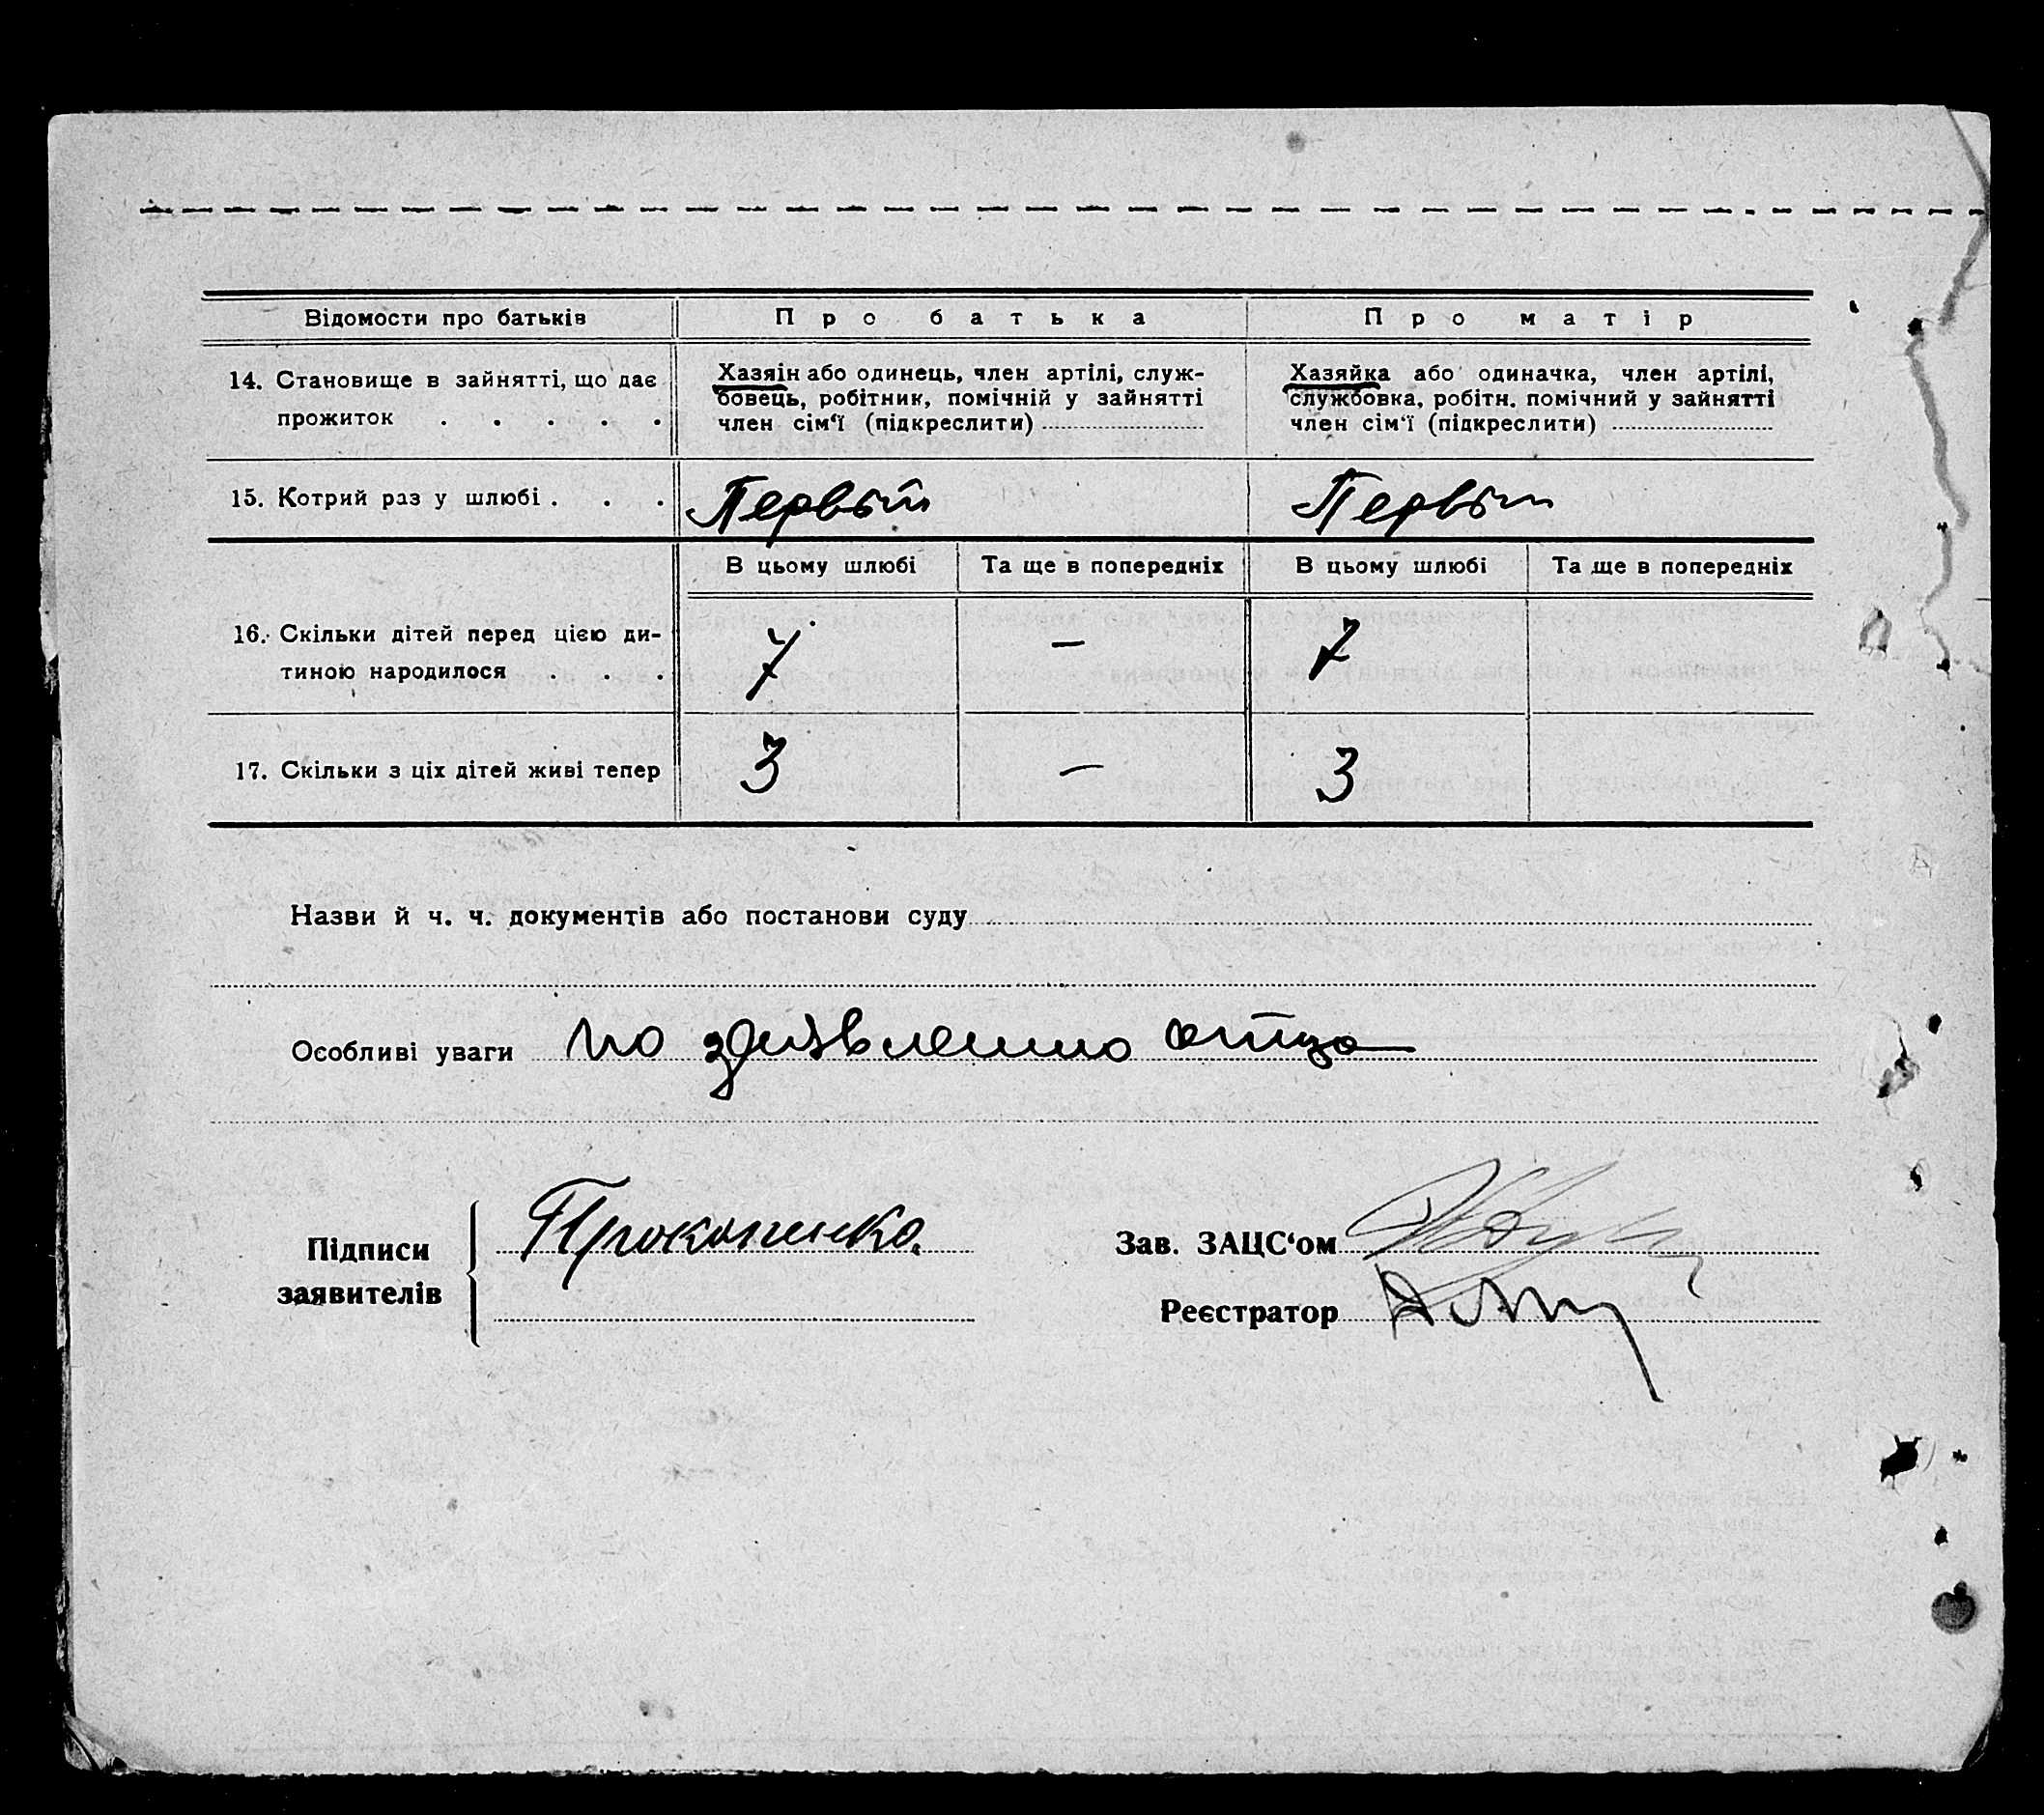 Відомости про батьків Про батька Про матір
14. Становище в зайнятті, що дає Хазяїн або одинець, член артілі, служ- Хазяйка або одиначка, член артілі,
прожиток . . . . . бовець, робітник, помічній у зайнятті службовка, робітн. помічний у зайнятті
член сім‘ї (підкреслити) член сім‘ї (підкреслити)
15. Котрий раз у шлюбі . . . Первый Первый
В цьому шлюбі Та ще в попередніх В цьому шлюбі Та ще в попередніх
16. Скільки дітей перед цією ди- 7 — 7
тиною народилося . . .
17. Скільки з ціх дітей живі тепер 3 — 3
Назви й ч. ч. документів або постанови суду
Особливі уваги по отца
Підписи Прокопенко. Зав. ЗАЦС‘ом
заявителів Реєстратор